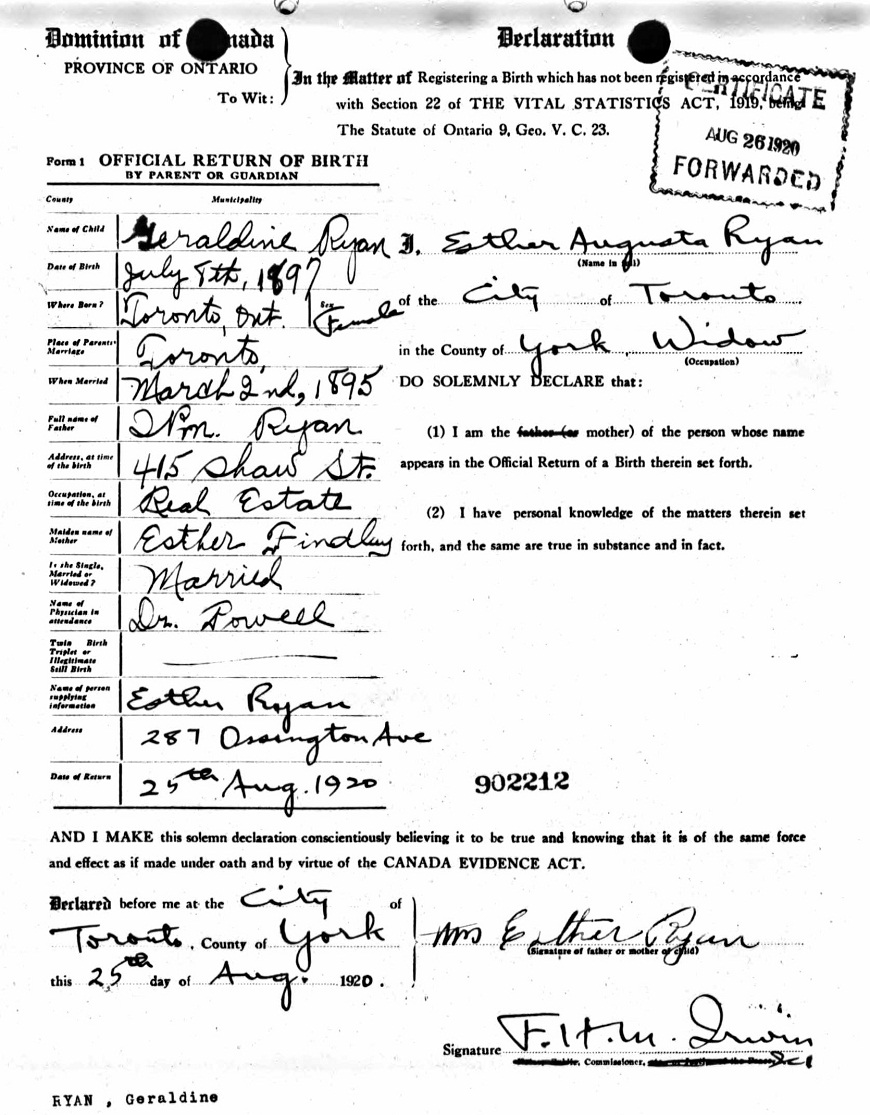 Dominion of Canada
PROVINCE OF ONTARIO
To Wit:
Declaration
In the Matter of Registering a Birth which has not been registered in accordance
with Section 22 of THE VITAL STATISTICS ACT, 1919, being
The Statute of Ontario 9, Geo. V. C. 23.
CERTIFICATE
AUG 26 1920
FORWARDED
Form 1 OFFICIAL RETURN OF BIRTH
BY PARENT OR GUARDIAN
County Municipality
Name of Child Geraldine Ryan
Date of Birth July 8th, 1897
Where Born? Toronto, Ont. Sex Female
Place of Parents' Marriage Toronto,
When Married March 2nd, 1895
Full name of Father Wm. Ryan
Address, at time of the birth 415 Shaw St.
Occupation, at time of the birth Real Estate
Maiden name of Mother Esther Findlay
Is she Single, Married or Widowed? Married
Name of Physician in attendance Dr. Powell
Twin Birth Triplet or Illegitimate Still Birth
Name of person supplying information Esther Ryan
Address 287 Ossington Ave
Date of Return 25th Aug. 1920
I, Esther Augusta Ryan
(Name in full)
of the City of Toronto
in the County of York, Widow
(Occupation)
DO SOLEMNLY DECLARE that:
(1) I am the father (or mother) of the person whose name
appears in the Official Return of a Birth therein set forth.
(2) I have personal knowledge of the matters therein set
forth, and the same are true in substance and in fact.
902212
AND I MAKE this solemn declaration conscientiously believing it to be true and knowing that it is of the same force
and effect as if made under oath and by virtue of the CANADA EVIDENCE ACT.
Declared before me at the City of
Toronto, County of York
this 25th day of Aug. 1920.
Mrs Esther Ryan
(Signature of father or mother of child)
Signature F. H. M. Irwin
Commissioner,
RYAN , Geraldine